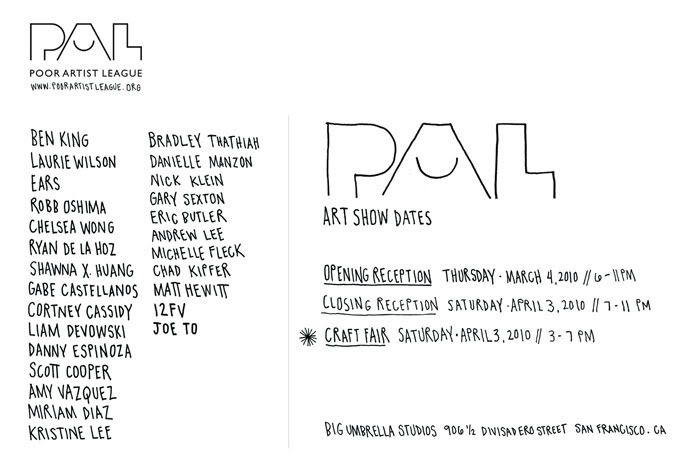 PAL
POOR ARTIST LEAGUE
WWW.POORARTISTLEAGUE.ORG
BEN KING
LAURIE WILSON
EARS
ROBB OSHIMA
CHELSEA WONG
RYAN DE LA HOZ
SHAWNA X. HUANG
GABE CASTELLANOS
CORTNEY CASSIDY
LIAM DEVOWSKI
DANNY ESPINOZA
SCOTT COOPER
AMY VAZQUEZ
MIRIAM DIAZ
KRISTINE LEE
BRADLEY THATHIAH
DANIELLE MANZON
NICK KLEIN
GARY SEXTON
ERIC BUTLER
ANDREW LEE
MICHELLE FLECK
CHAD KIPFER
MATT HEWITT
12FV
JOE TO
PAL
ART SHOW DATES
OPENING RECEPTION THURSDAY · MARCH 4, 2010 // 6-11 PM
CLOSING RECEPTION SATURDAY · APRIL 3, 2010 // 7-11 PM
CRAFT FAIR SATURDAY · APRIL 3, 2010 // 3-7 PM
BIG UMBRELLA STUDIOS 906 1/2 DIVISADERO STREET SAN FRANCISCO. CA